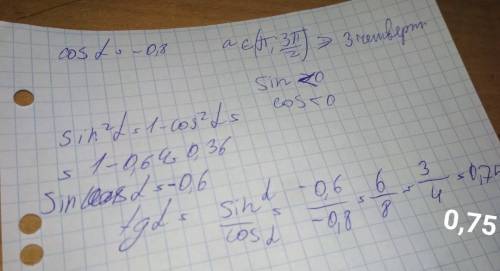 cos α = -0,8   α ∈ (π; 3π/2) ⇒ 3 четверт
sin < 0
cos < 0
sin²α = 1 - cos²α =
= 1 - 0,64 = 0,36
sin α = -0,6
tg α = sin α / cos α = -0,6 / -0,8 = 6/8 = 3/4 = 0,75
0,75